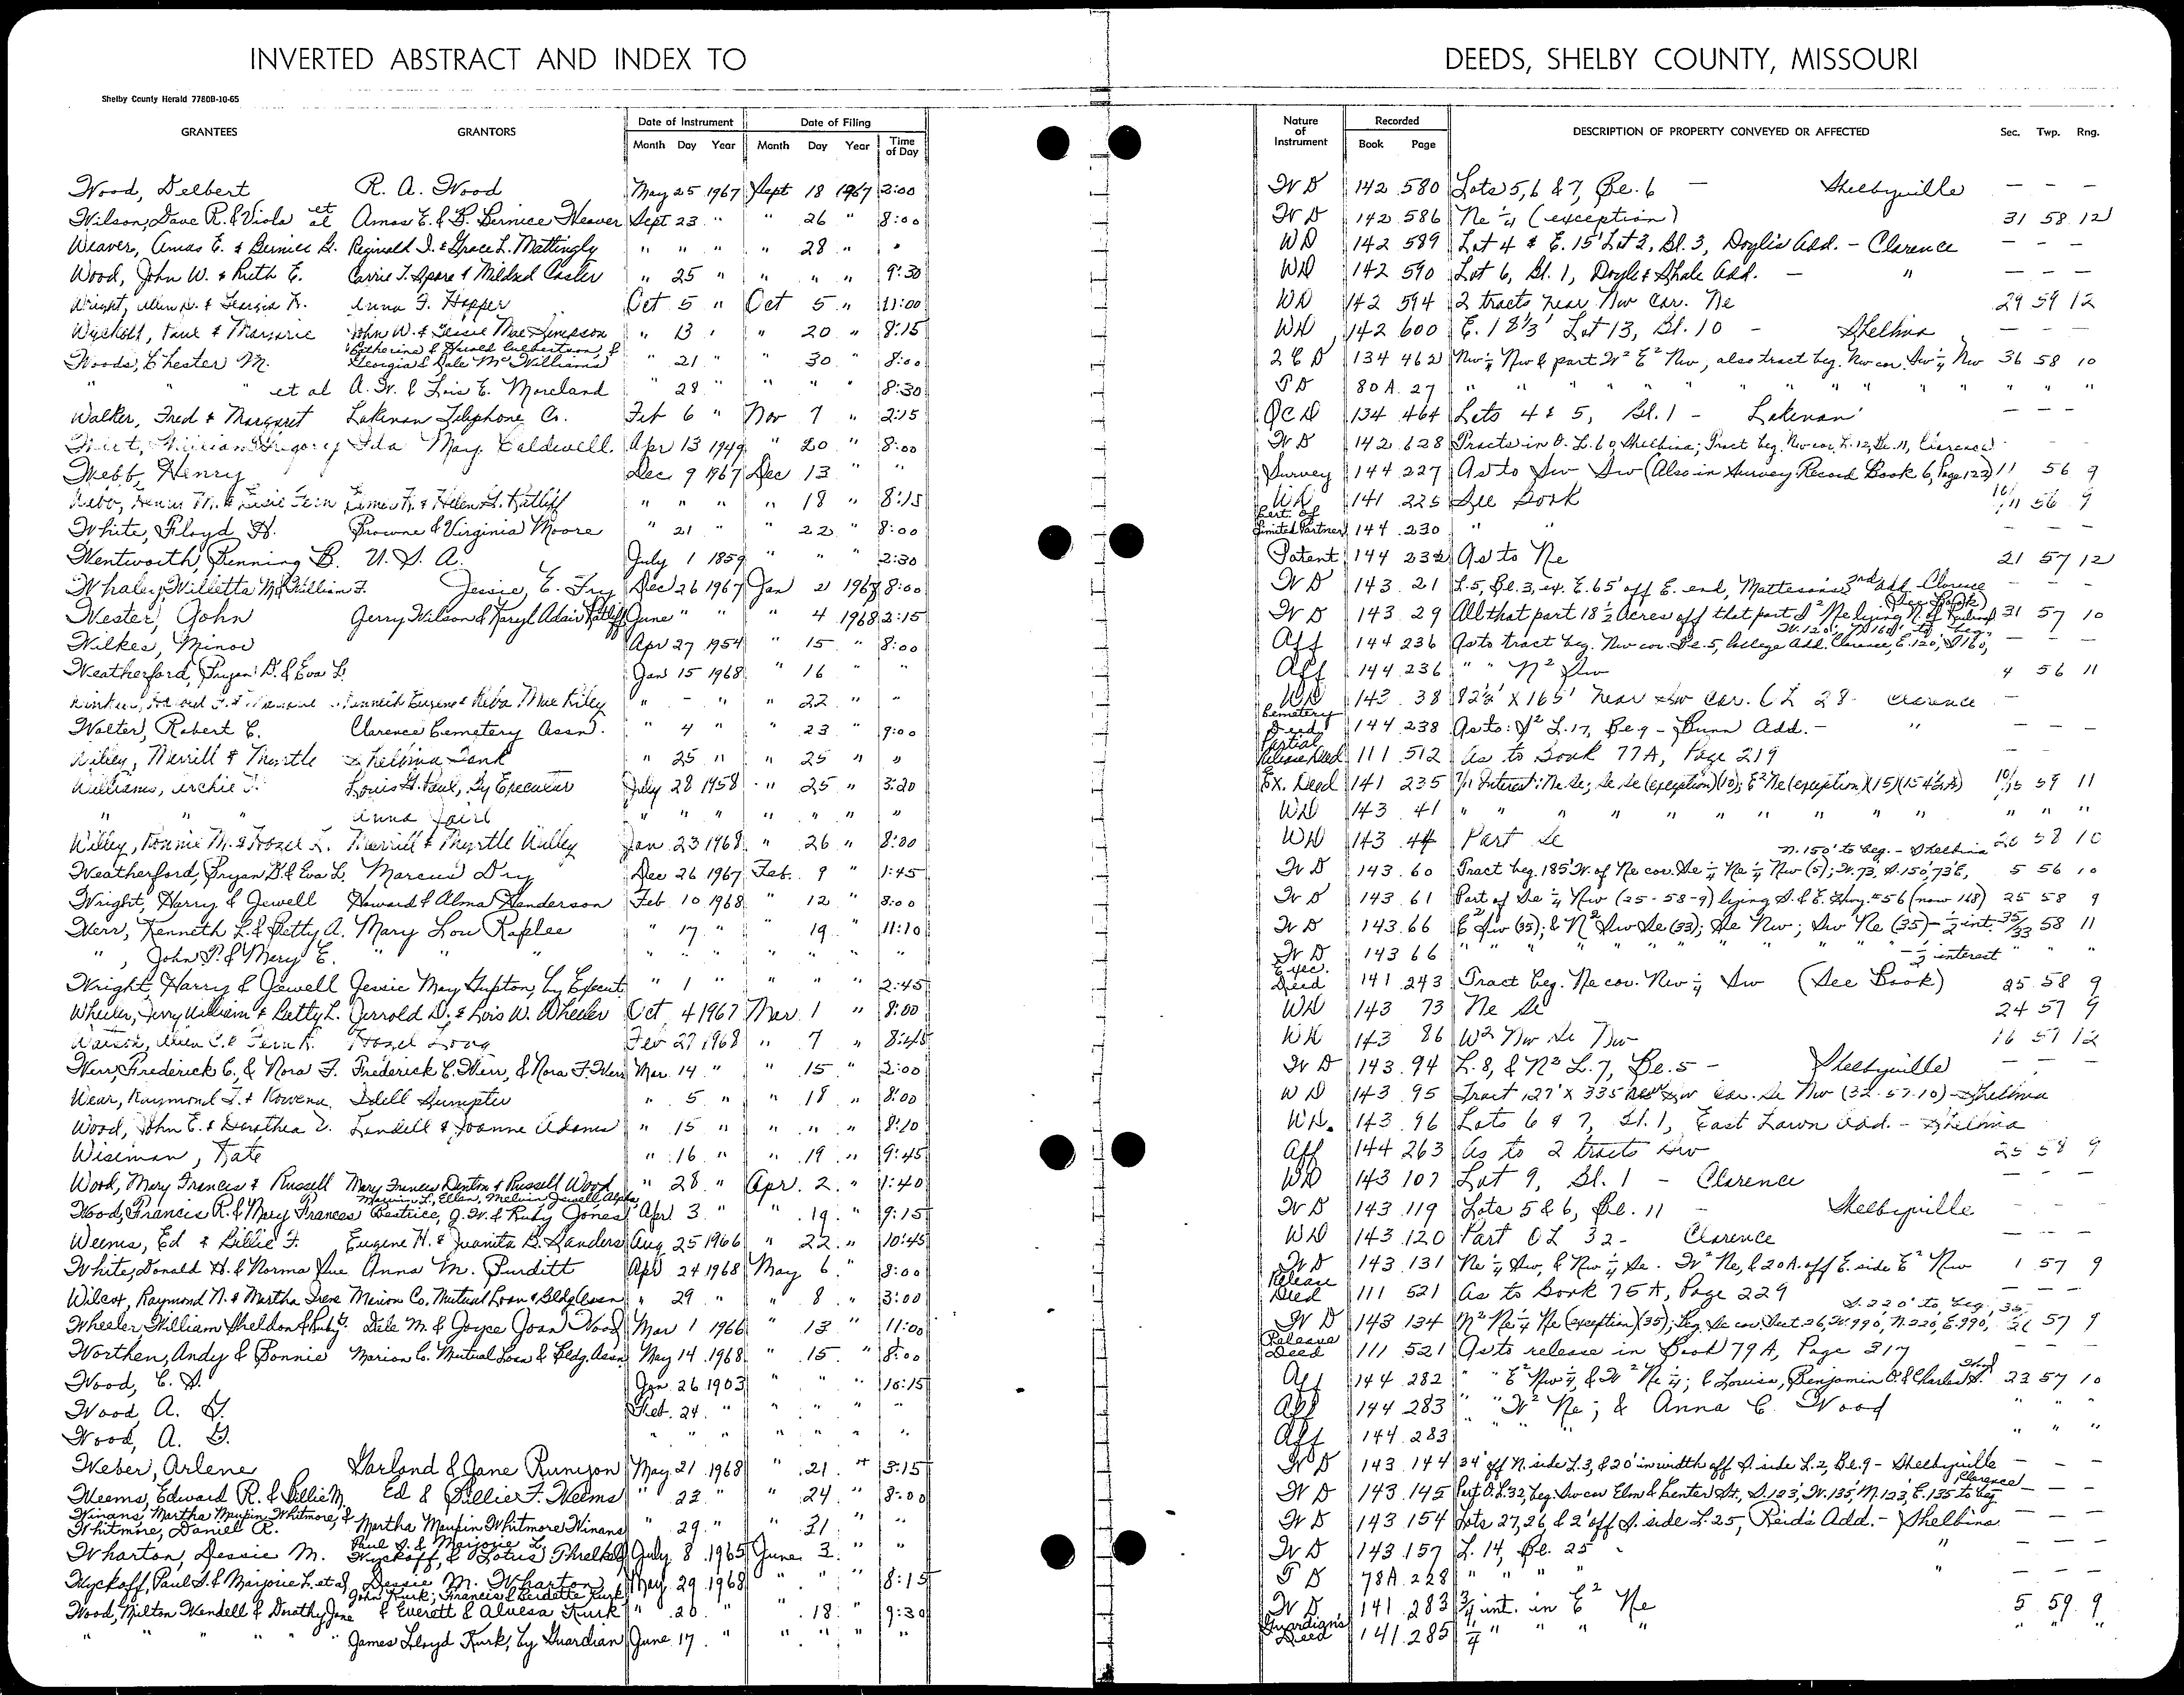 INVERTED ABSTRACT AND INDEX TO DEEDS, SHELBY COUNTY, MISSOURI
Shelby County Herald 7780B-10-65
GRANTEES GRANTORS Date of Instrument Month Day Year Date of Filing Month Day Year Time of Day Nature of Instrument Recorded Book Page DESCRIPTION OF PROPERTY CONVEYED OR AFFECTED Sec. Twp. Rng.
Wood, Delbert R. A. Wood May 25 1967 Sept 18 1967 2:00 W D 142 580 Lots 5, 6 & 7, Bl. 6 — Shelbyville — — —
Wilson, Dave R. & Viola et al Amos E. & B. Bernice Weaver Sept 23 " " 26 " 8:00 W D 142 586 Ne ¼ (exception) 31 58 12
Weaver, Amos E. & Bernice B. Reginald I. & Grace L. Mattingly " " " " 28 " " WD 142 589 Lot 4 & E. 15' Lot 3, Bl. 3, Doyle's Add. - Clarence — — —
Wood, John W. & Ruth E. Carrie T. Spare & Mildred Caster " 25 " " " " 9:30 WD 142 590 Lot 6, Bl. 1, Doyle & Shale Add. — " — — —
Wright, & Georgia Anna F. Hopper Oct 5 " Oct 5 " 11:00 WD 142 594 2 tracts near Nw Cor. Ne 29 59 12
Wyckoff, Paul & Marjorie John W. & Jessie Mae Simpson " 13 " " 20 " 8:15 WD 142 600 E. 18⅓' Lot 13, Bl. 10 - Shelbina — — —
Woods, Chester M. Catherine & Harold Culbertson, & Georgia & Dale McWilliams " 21 " " 30 " 8:00 2 C D 134 462 Nw ¼ Nw & part W² E² Nw, also tract beg. Nw cor. Sw ¼ Nw 36 58 10
" " et al A. W. & Lois E. Moreland " 28 " " " " 8:30 T D 80A 27 " " " " " " " " " " " " "
Walker, Fred & Margaret Lakenan Telephone Co. Feb 6 " Nov 7 " 2:15 QCD 134 464 Lots 4 & 5, Bl. 1 - Lakenan — — —
William Gregory Ida May Caldwell Apr 13 1949 " 20 " 8:00 W D 142 628 Tracts in O. L. 60, Shelbina; Tract beg. Nw cor. L. 12, Bl. 11, Clarence - - -
Webb, Henry Dec 9 1967 Dec 13 " " Survey 144 227 As to Sw Sw (Also in Survey Record Book 6, Page 122) 11 56 9
Webb, Henry M. & Elsie Fern Elmer H. & Helen G. Ratliff " " " " 18 " 8:15 WD 141 225 See Book 10/11 56 9
White, Floyd H. Browne & Virginia Moore " 21 " 22 " 8:00 Cert. of Limited Partner 144 230 " " — — —
Wentworth, Benning B. U. S. A. July 1 1859 " " " 2:30 Patent 144 232 As to Ne 21 57 12
Whaley, Willetta M. & William F. Jessie E. Fry Dec 26 1967 Jan 2 1968 8:00 W D 143 21 L. 5, Bl. 3, ex. E. 65' off E. end, Matteson's 2nd Add. Clarence
Wester, John Jerry Wilson & Karyl Adair Ratliff June " " " 4 1968 2:15 W D 143 29 All that part 18½ Acres off that part S² Ne lying N. of Railroad (See Book) 31 57 10
Wilkes, Minor Apr 27 1954 " 15 " 8:00 Aff 144 236 As to tract beg. Nw cor. Bl. 5, College Add. Clarence, E. 120', S 160', W. 120', N 160' to beg. — — —
Weatherford, Bryan D. & Eva L. Jan 15 1968 " 16 " " Aff 144 236 " " N² Sw 4 56 11
Kenneth Eugene & Reba Mae Kiley " - " " 22 " " WD 143 38 82½' X 165' near Sw cor. OL 28 - Clarence —
Walter, Robert C. Clarence Cemetery Assn. " 4 " " 23 " 9:00 Cemetery Deed 144 238 As to: S² L. 17, Bl. 9 - Bunn Add. - " — —
Willey, Merrill & Myrtle Shelbina Bank " 25 " " 25 " " Partial Release Deed 111 512 As to Book 77A, Page 219
Williams, Archie Louis G. Paul, By Executor July 28 1958 " 25 " 3:20 Ex. Deed 141 235 7/11 Interest: Ne Se; Se Se (exception)(10); E² Ne (exception)(15)(15 4½ A) 10/15 59 11
" " Anna Jaird " " " " " " " WD 143 41 " " " " " " " " " " "
Willey, Ronnie M. & Hazel L. Merrill & Myrtle Willey Jan 23 1968 " 26 " 8:00 WD 143 44 Part Se 20 58 10
Weatherford, Bryan D. & Eva L. Marcus Dry Dec 26 1967 Feb. 9 " 1:45 W D 143 60 Tract beg. 185' W. of Ne cor. Se ¼ Ne ¼ Nw (5); W. 73, S. 150', 73' E, N. 150' to beg. - Shelbina 5 56 10
Wright, Harry & Jewell Howard & Alma Henderson Feb 10 1968 " 12 " 8:00 W D 143 61 Part of Se ¼ Nw (25-58-9) lying S. & E. Hwy. #56 (now 168) 25 58 9
Werr, Kenneth L. & Betty A. Mary Lou Raplee " 17 " " 19 " 11:10 W D 143 66 E² Sw (35); & N² Sw Se (33); Se Nw; Sw Ne (35) - ½ int. 35/33 58 11
" , John P. & Mary E. " " " " " " " " " " W D 143 66 " " " " " " " - ½ interest " " "
Wright, Harry & Jewell Jessie May Gupton, by Execut. " 1 " " " " 2:45 Exec. Deed 141 243 Tract beg. Ne cor. Nw ¼ Sw (See Book) 25 58 9
Wheeler, Jerry William & Betty L. Jerrold D. & Lois W. Wheeler Oct 4 1967 Mar. 1 " 8:00 WD 143 73 Ne Se 24 57 9
Hazel Long Feb 27 1968 " 7 " 8:45 WD 143 86 W² Nw Se Nw 16 57 12
Werr, Frederick C. & Nora F. Frederick C. Werr, & Nora F. Werr Mar. 14 " " 15 " 2:00 W D 143 94 L. 8, & N² L. 7, Bl. 5 - Shelbyville — — —
Wear, Raymond & Rowena Idell Sumpter " 5 " " 18 " 8:00 W D 143 95 Tract 127' X 335' Sw cor. Se Nw (32-57-10) - Shelbina
Wood, John E. & Dorothea D. Lendell & Joanne Adams " 15 " " " " 8:20 WD. 143 96 Lots 6 & 7, Bl. 1, East Lawn Add. - Shelbina
Wiseman, Kate " 16 " " 19 " 9:45 Aff 144 263 As to 2 tracts Sw 25 58 9
Wood, Mary Frances & Russell Mary Frances Denton & Russell Wood " 28 " Apr. 2 " 1:40 WD 143 107 Lot 9, Bl. 1 - Clarence — — —
Wood, Francis R. & Mary Frances L., Ellen, Melvin, Jewell Alpha, Beatrice, J. W. & Ruby Jones Apr 3 " " 19 " 9:15 W D 143 119 Lots 5 & 6, Bl. 11 - Shelbyville - - -
Weems, Ed & Billie F. Eugene H. & Juanita B. Sanders Aug 25 1966 " 22 " 10:45 WD 143 120 Part OL 32 - Clarence — — —
White, Donald H. & Norma Sue Anna M. Purditt Apr 24 1968 May 6 " 8:00 W D 143 131 Ne ¼ Sw, & Nw ¼ Se. W² Ne, & 20 A. off E. side E² Nw 1 57 9
Wilcox, Raymond N. & Martha Irene Marion Co. Mutual Loan & Bldg Assn " 29 " " 8 " 3:00 Release Deed 111 521 As to Book 75A, Page 229 — — —
Wheeler, William Sheldon & Ruby Dale M. & Joyce Joan Wood Mar 1 1966 " 13 " 11:00 W D 143 134 N² Ne ¼ Ne (exception)(35); beg. Se cor. Sect 26, W. 990', N. 220', E. 990', S. 220' to beg. 35/26 57 9
Worthen, Andy & Bonnie Marion C. Mutual Loan & Bldg. Assn May 14 1968 " 15 " 8:00 Release Deed 111 521 As to release in Book 79A, Page 317 — — —
Wood, C. A. Jan 26 1903 " " " 10:15 Aff 144 282 " " E² Nw ¼, & W² Ne ¼; & Louise, Benjamin & Charles Wood 23 57 10
Wood, A. G. Feb. 24 " " " " " Aff 144 283 " " W² Ne; & Anna C. Wood " " "
Wood, A. G. " " " " " " " Aff 144 283 " " "
Weber, Arlene Garland & Jane Runyon May 21 1968 " 21 " 3:15 W D 143 144 24' off N. side L. 3, & 20' in width off S. side L. 2, Bl. 9 - Shelbyville — — —
Weems, Edward R. & Billie M. Ed & Billie F. Weems " 23 " " 24 " 8:00 W D 143 145 Part O. L. 32, beg. Sw cor Elm & Center St., S. 123', W. 135', N. 123', E. 135' to beg Clarence — — —
Winans, Martha Maupin Whitmore, & Whitmore, Daniel R. Martha Maupin Whitmore Winans " 29 " " 31 " " W D 143 154 Lots 27, 26, & 2' off S. side L. 25, Reid's Add. - Shelbina — — —
Wharton, Dessie M. Paul S. & Marjorie L. Wyckoff, & Lotus Threlkeld July 8 1965 June 3 " " W D 143 157 L. 14, Bl. 25 - " — — —
Wyckoff, Paul S. & Marjorie L. et al Dessie M. Wharton May 29 1968 " " " 8:15 T D 78A 228 " " " " — — —
Wood, Milton Wendell & Dorothy Jane John Kurk; Francis & Burdette Kurk & Everett & Aluesa Kurk " 20 " " 18 " 9:30 W D 141 283 ¾ int. in E² Ne 5 59 9
" " " " " James Lloyd Kurk, by Guardian June 17 " " " " " Guardian's Deed 141 285 ¼ " " " " " " "